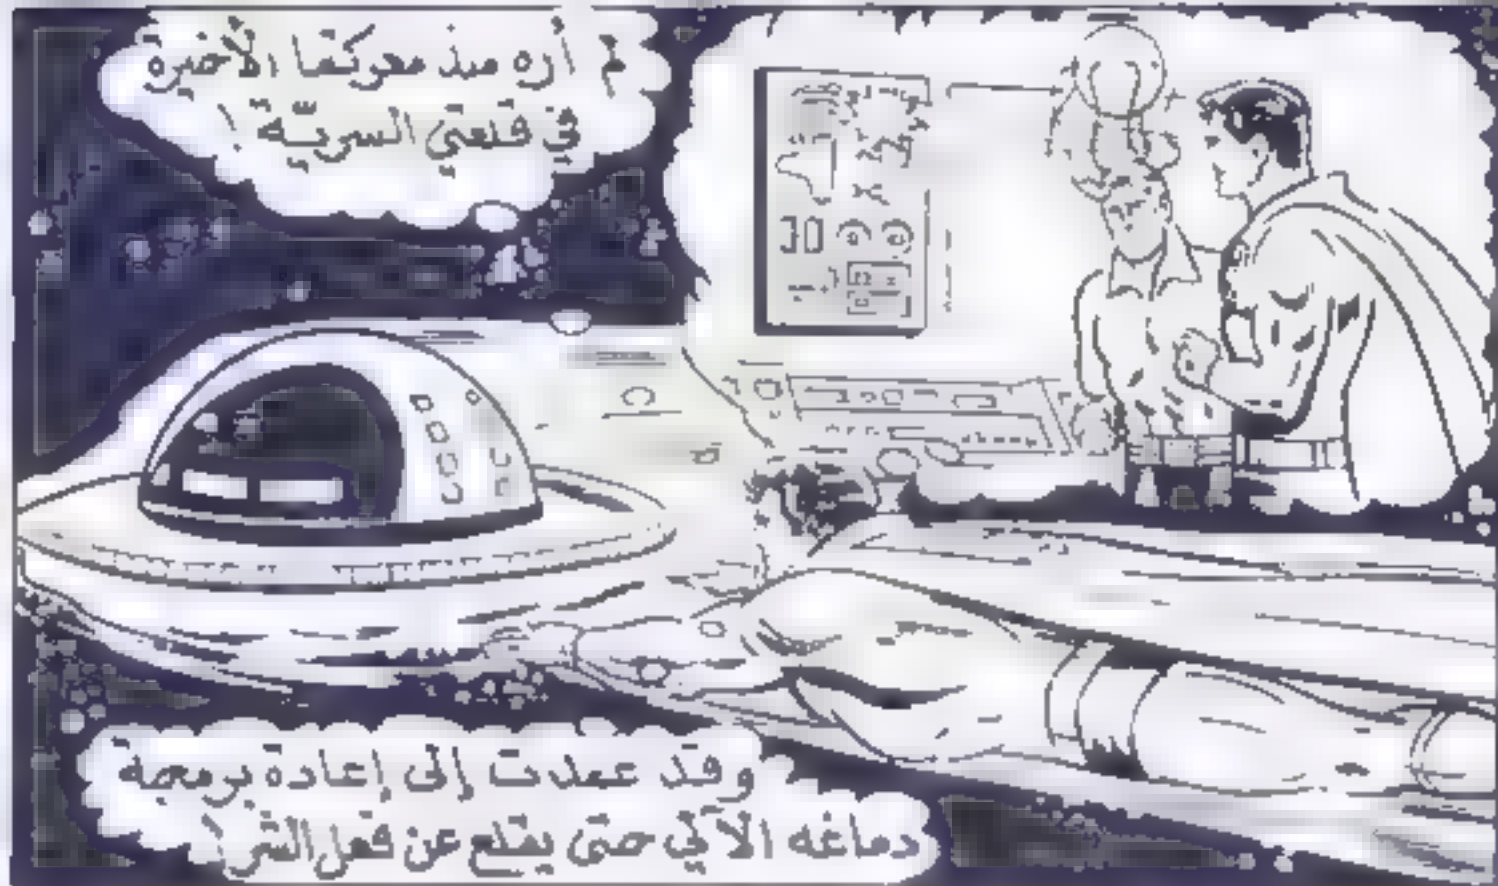 لم أره منذ معركتنا الأخيرة
في قلعتي السريّة !
وقد عمدت إلى إعادة برمجة
دماغه الآلي حتى يقلع عن فعل الشر !